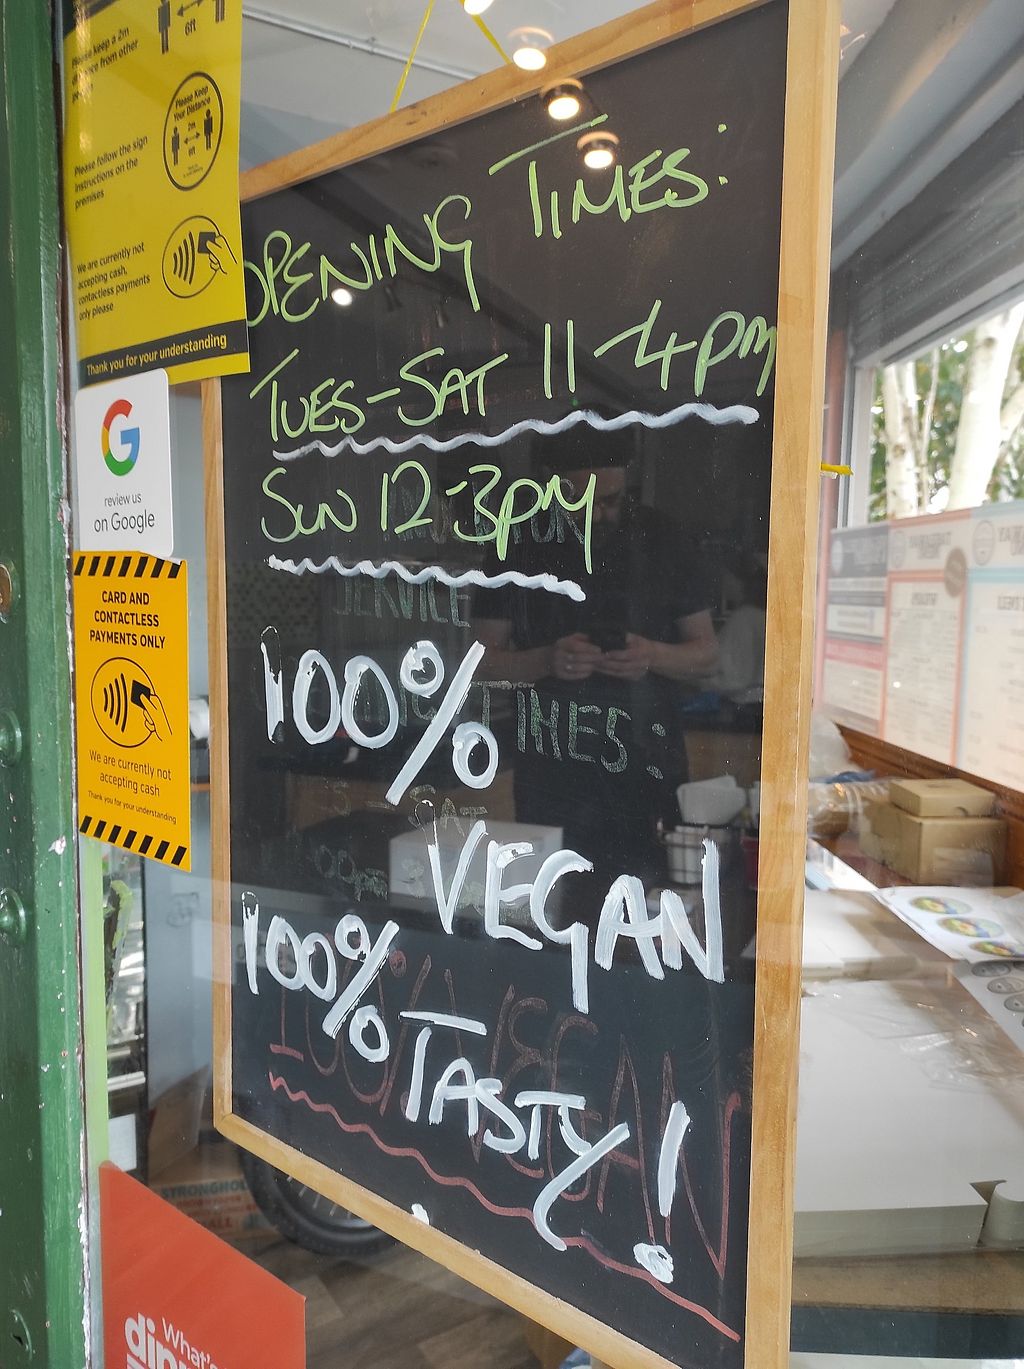 Please keep a 2m
distance from other
6ft
Please Keep
Your Distance
2m
6ft
Please follow the sign
instructions on the
premises
We are currently not
accepting cash,
contactless payments
only please
Thank you for your understanding
G
review us
on Google
CARD AND
CONTACTLESS
PAYMENTS ONLY
We are currently not
accepting cash
Thank you for your understanding
What's
OPENING TIMES:
TUES-SAT 11-4pm
SUN 12-3pm
SERVICE
TIMES:
SAT
100%
VEGAN
100%
TASTY!
100% VEGAN
STRONGHOLD